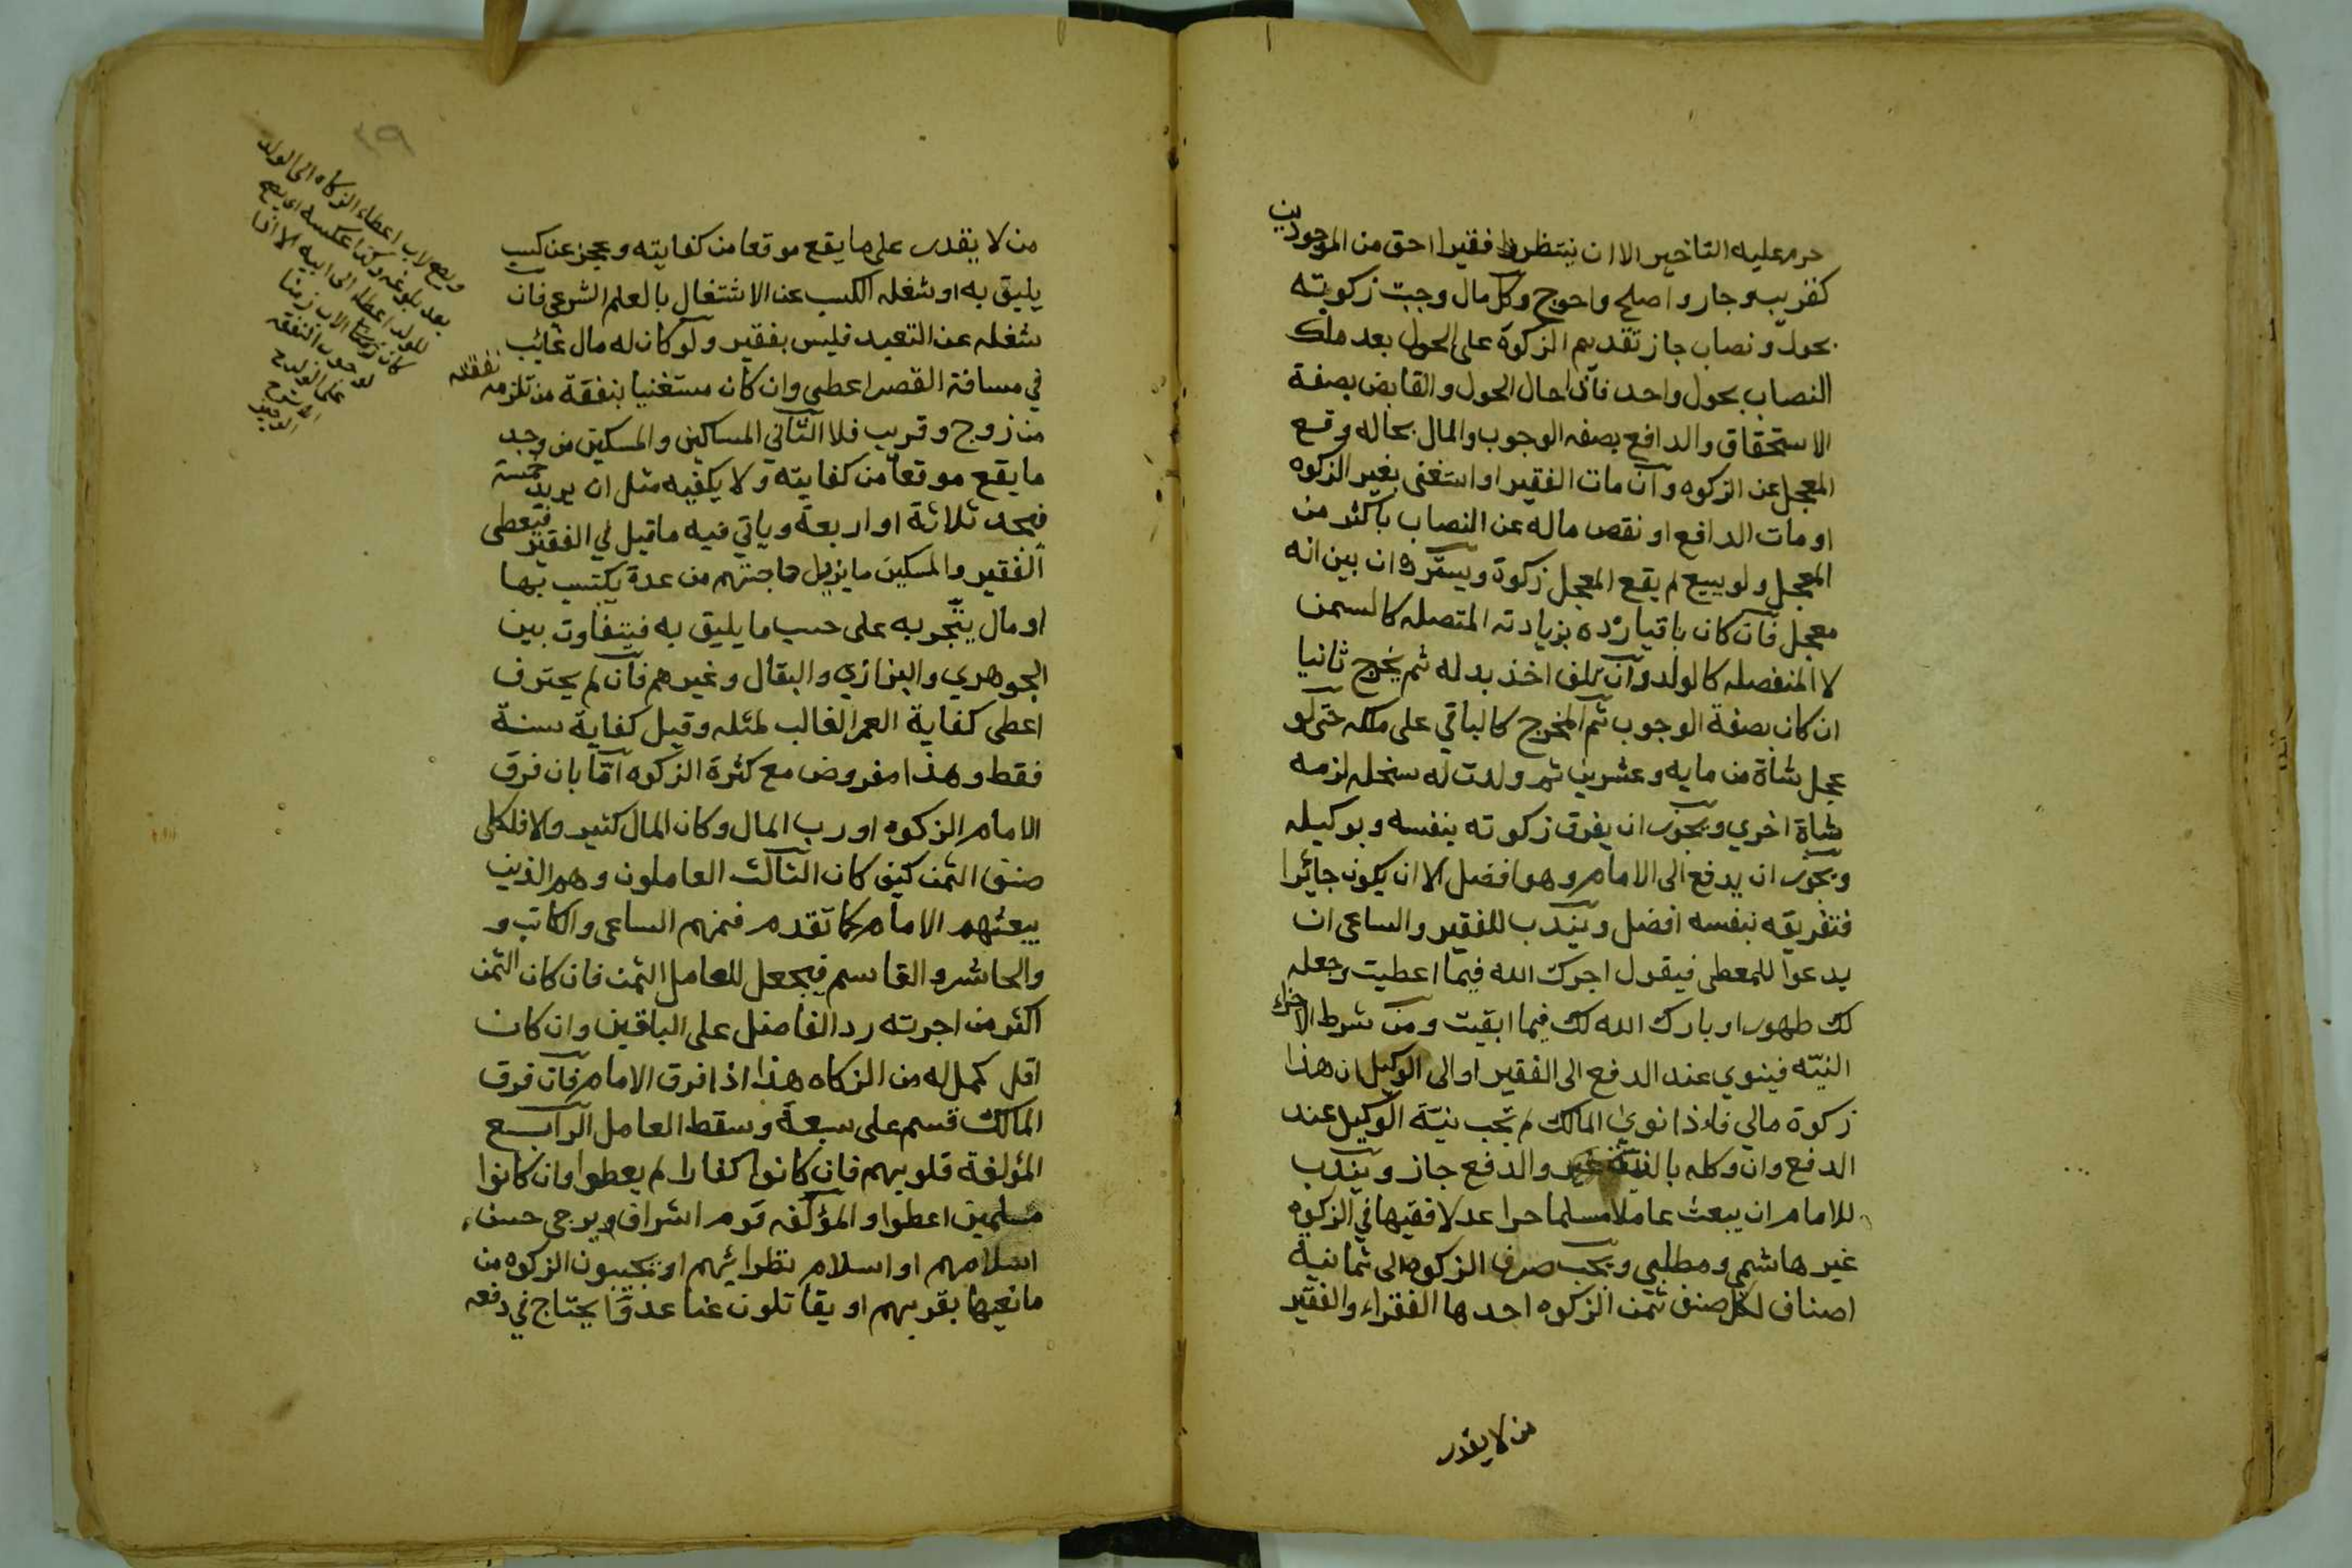 حرم عليه التاخير الا ان ينتظر فقيرا احق من الموجودين
كقريب وجار واصلح واحوج وكل مال وجبت زكوته
بحول ونصاب جاز تقديم الزكوة على الحول بعد ملك
النصاب بحول واحد فاذا حال الحول والقابض بصفة
الاستحقاق والدافع بصفه الوجوب والمال بحاله وقع
المعجل عن الزكوه وان مات الفقير او استغنى بغير الزكوه
او مات الدافع او نقص ماله عن النصاب باكثر من
المعجل ولو ببيع لم يقع المعجل زكوة ويسترد ان بين انه
معجل فان كان باقيا رده بزيادته المتصله كالسمن
لا المنفصله كالولد وان تلف اخذ بدله ثم يخرج ثانيا
ان كان بصفة الوجوب ثم المخرج كالباقي على ملكه حتى لو
عجل شاة من مايه وعشرين ثم ولدت له سخله لزمه
شاة اخري ويجوز ان يفرق زكوته بنفسه وبوكيله
ويجوز ان يدفع الى الامام وهو افضل الا ان يكون جائرا
فتفريقه بنفسه افضل ويندب للفقير والساعى ان
يدعوا للمعطى فيقول اجرك الله فيما اعطيت وجعله
لك طهورا وبارك الله لك فيما ابقيت ومن شرط الاجزاء
النيّه فينوي عند الدفع الى الفقير او الى الوكيل ان هذا
زكوة مالي فاذا نوي المالك لم تجب نيّة الوكيل عند
الدفع وان وكله بالنية والدفع جاز ويندب
للامام ان يبعث عاملا مسلما حرا عدلا فقيها في الزكوه
غير هاشمي ومطلبي ويجب صرف الزكوه الى ثمانية
اصناف لكل صنف ثمن الزكوه احدها الفقراء والفقير
من لا يقدر
٣٩
من لا يقدر على ما يقع موقعا من كفايته وعجز عن كسب
يليق به او شغله الكسب عن الاشتغال بالعلم الشرعي فان
شغله عن التعبد فليس بفقير ولو كان له مال غائب
في مسافة القصر اعطى وان كان مستغنيا بنفقة من تلزمه نفقته
من زوج وقريب فلا الثاني المساكين والمسكين من وجد
ما يقع موقعا من كفايته ولا يكفيه مثل ان يريد خمسة
فيجد ثلاثة او اربعة وياتي فيه ما قيل في الفقير فيعطى
الفقير والمسكين ما يزيل حاجتهم من عدة يكتسب بها
او مال يتّجر به على حسب ما يليق به فيتفاوت بين
الجوهري والبزازي والبقال وغيرهم فان لم يحترف
اعطى كفاية العمر الغالب لمثله وقيل كفاية سنة
فقط وهذا مفروض مع كثرة الزكوه امّا بان فرق
الامام الزكوه او رب المال وكان المال كثير والا فلكل
صنف الثمن كيف كان الثالث العاملون وهم الذين
يبعثهم الامام كما تقدم فمنهم الساعى والكاتب و
والحاشر والقاسم فيجعل للعامل الثمن فان كان الثمن
اكثر من اجرته رد الفاضل على الباقين وان كان
اقل كمل له من الزكاه هذا اذا فرق الامام فان فرق
المالك قسم على سبعة وسقط العامل الرابع
المؤلفة قلوبهم فان كانوا كفارا لم يعطوا وان كانوا
مسلمين اعطوا والمؤلّفه قوم اشراف ويرجى حسن
اسلامهم او اسلام نظرائهم او يجبون الزكوه من
مانعيها بقربهم او يقاتلون عنا عدوّا يحتاج في دفعه
ويصح لاب اعطاء الزكاه الى الولد
بعد بلوغه وكذا عكسه اى يصح
للولد اعطا الى ابيه الا اذا
كان الاب زمنا
لوجوب النفقه
على الولد